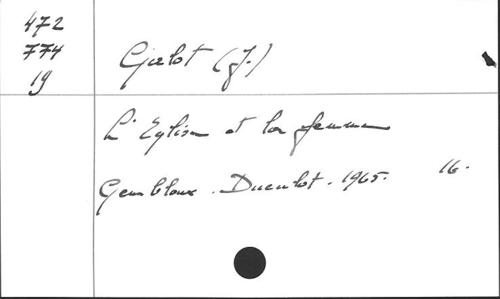 472
774
19
Gielot (J.)
L'Eglise et la femme
Gembloux. Duculot. 1965. 16.